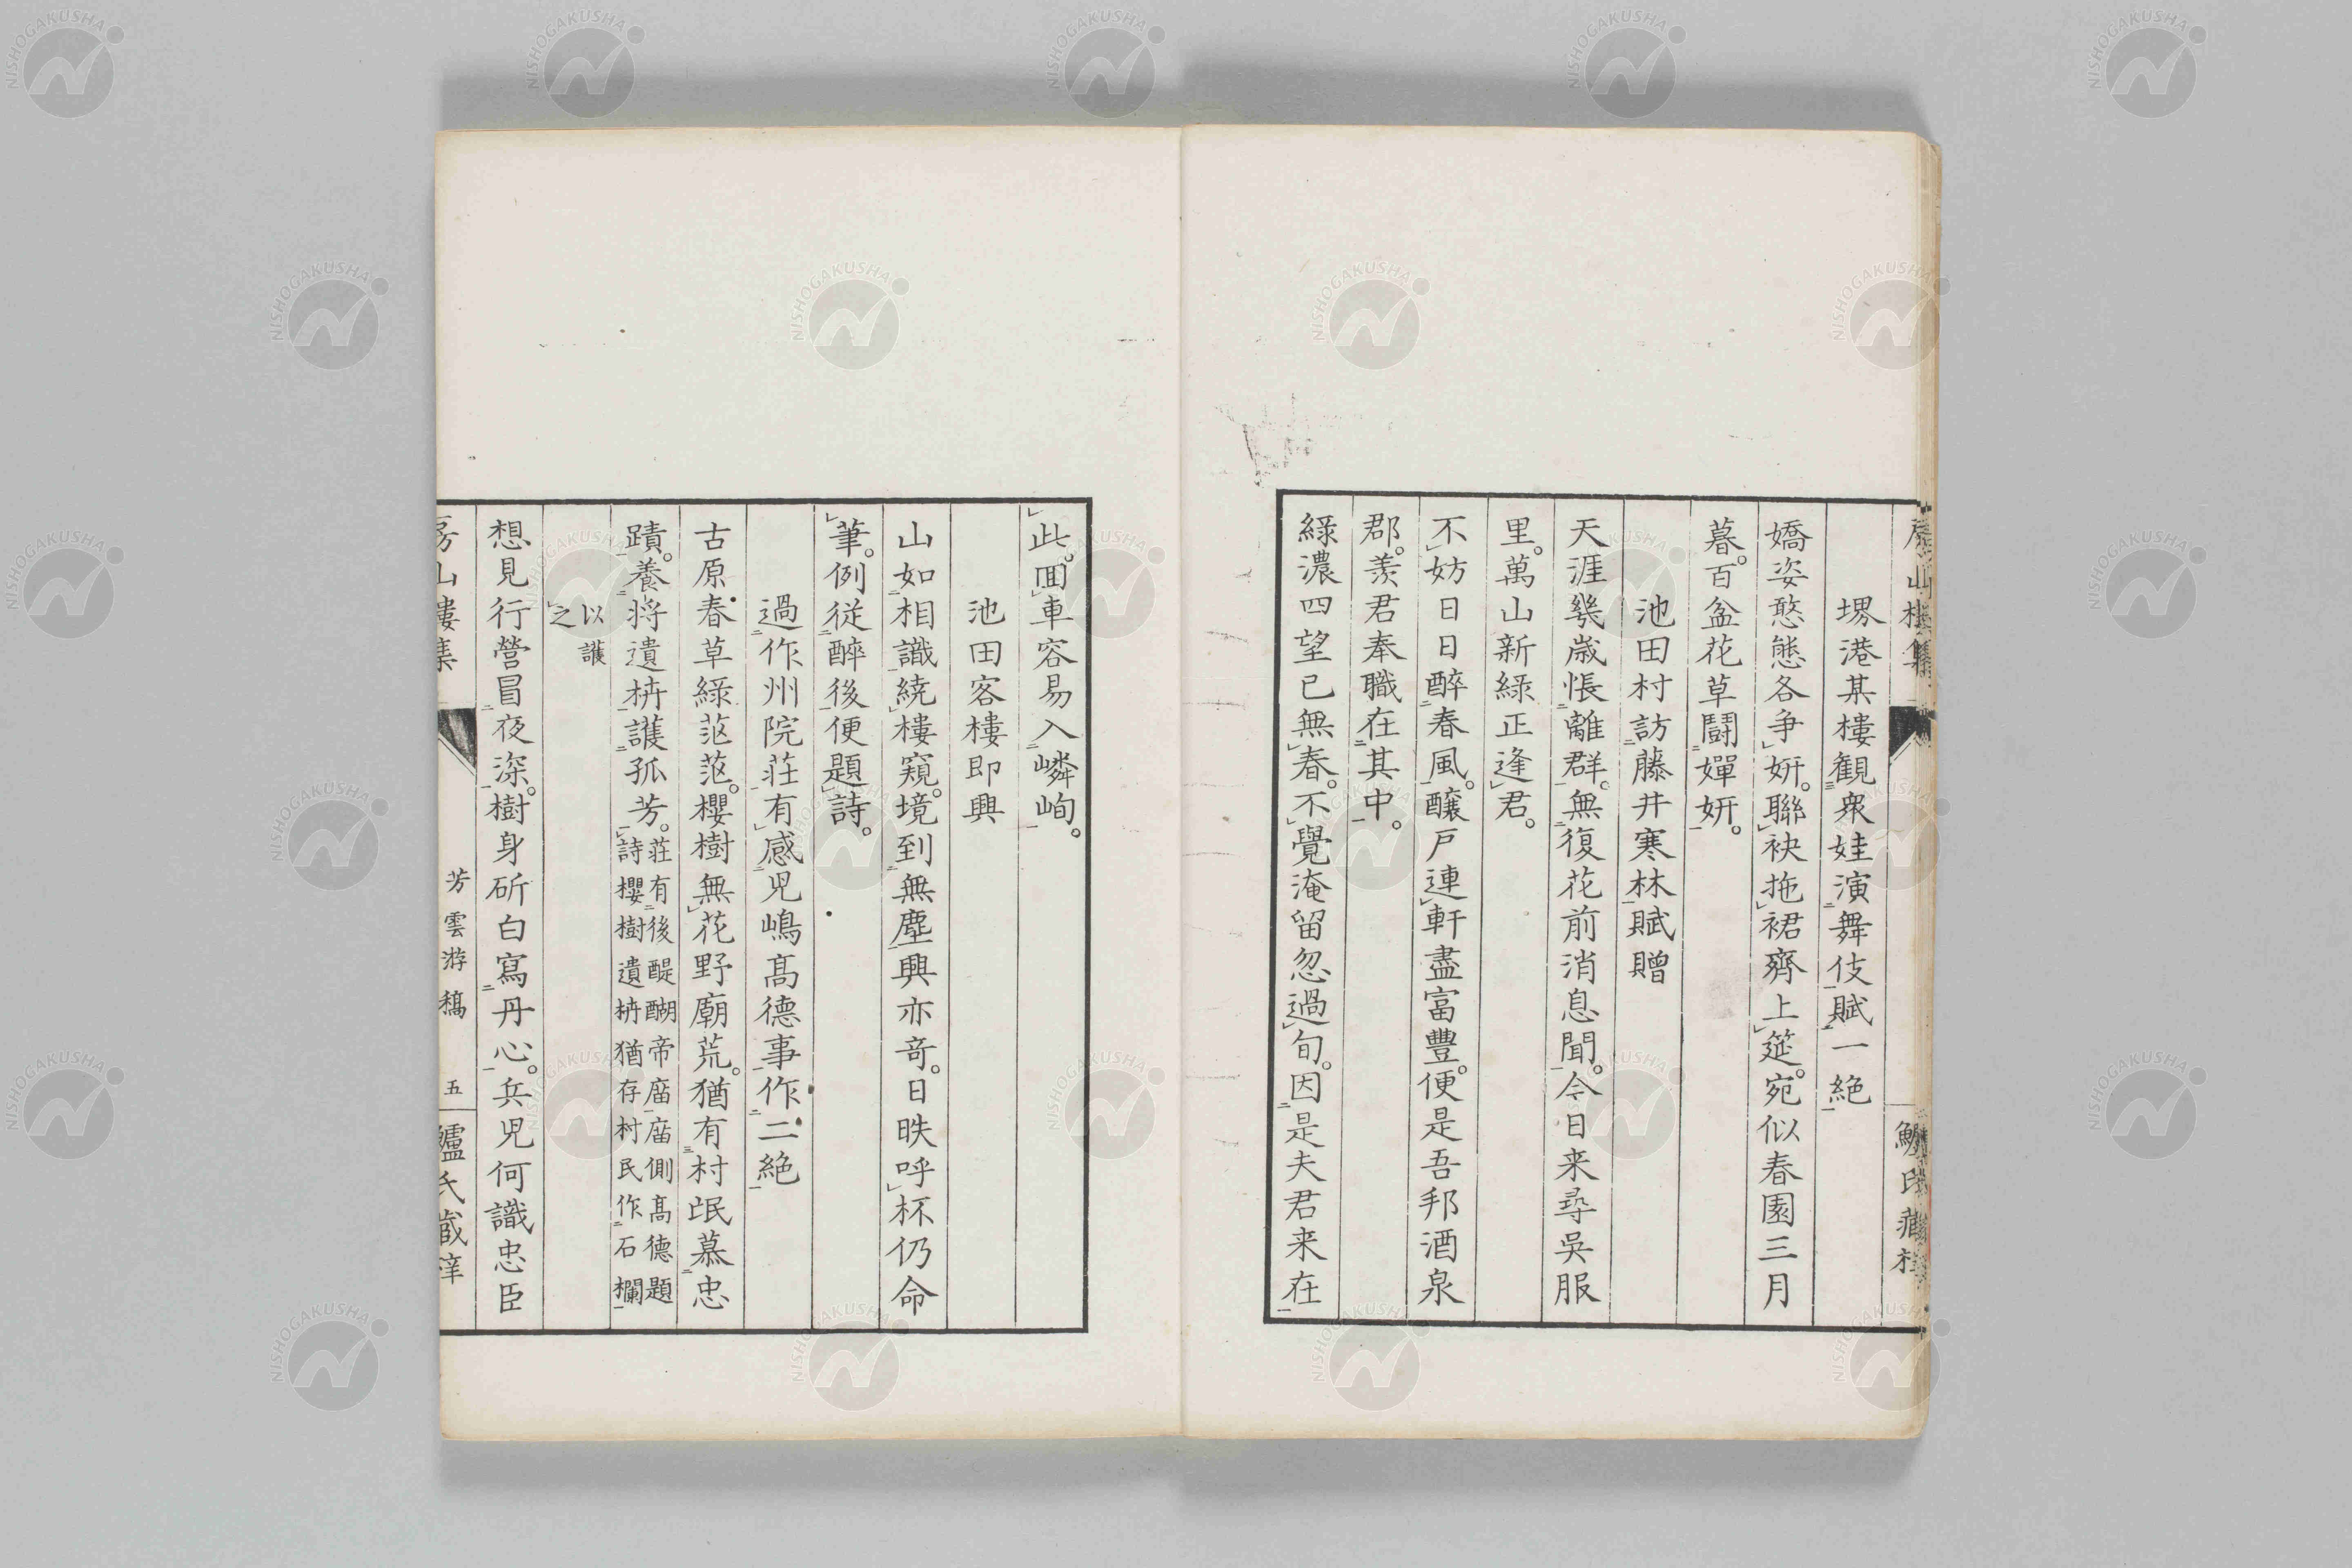 房山樓集
鱸氏藏梓
堺港某樓観衆娃演舞伎賦一絶
嬌姿憨態各争妍。聯袂拖裙齊上筵。宛似春園三月
暮。百盆花草鬪嬋妍。
池田村訪藤井寒林賦贈
天涯幾歳悵離群。無復花前消息聞。今日来尋呉服
里。萬山新緑正逢君。
不妨日日酔春風。釀戸連軒盡富豐。便是吾邦酒泉
郡。羨君奉職在其中。
緑濃四望已無春。不覺淹留忽過旬。因是夫君来在
此。囬車容易入嶙峋。
池田客樓即興
山如相識繞樓窺。境到無塵興亦竒。日昳呼杯仍命
筆。例従酔後便題詩。
過作州院荘有感児嶋髙德事作二絶
古原春草緑茫茫。櫻樹無花野廟荒。猶有村氓慕忠
蹟。養将遺枿護孤芳。荘有後醍醐帝庿庿側髙德題
詩櫻樹遺枿猶存村民作石欄
以護
之
想見行營冒夜深。樹身斫白寫丹心。兵児何識忠臣
房山樓集
芳雲游稿
五
鱸氏藏梓